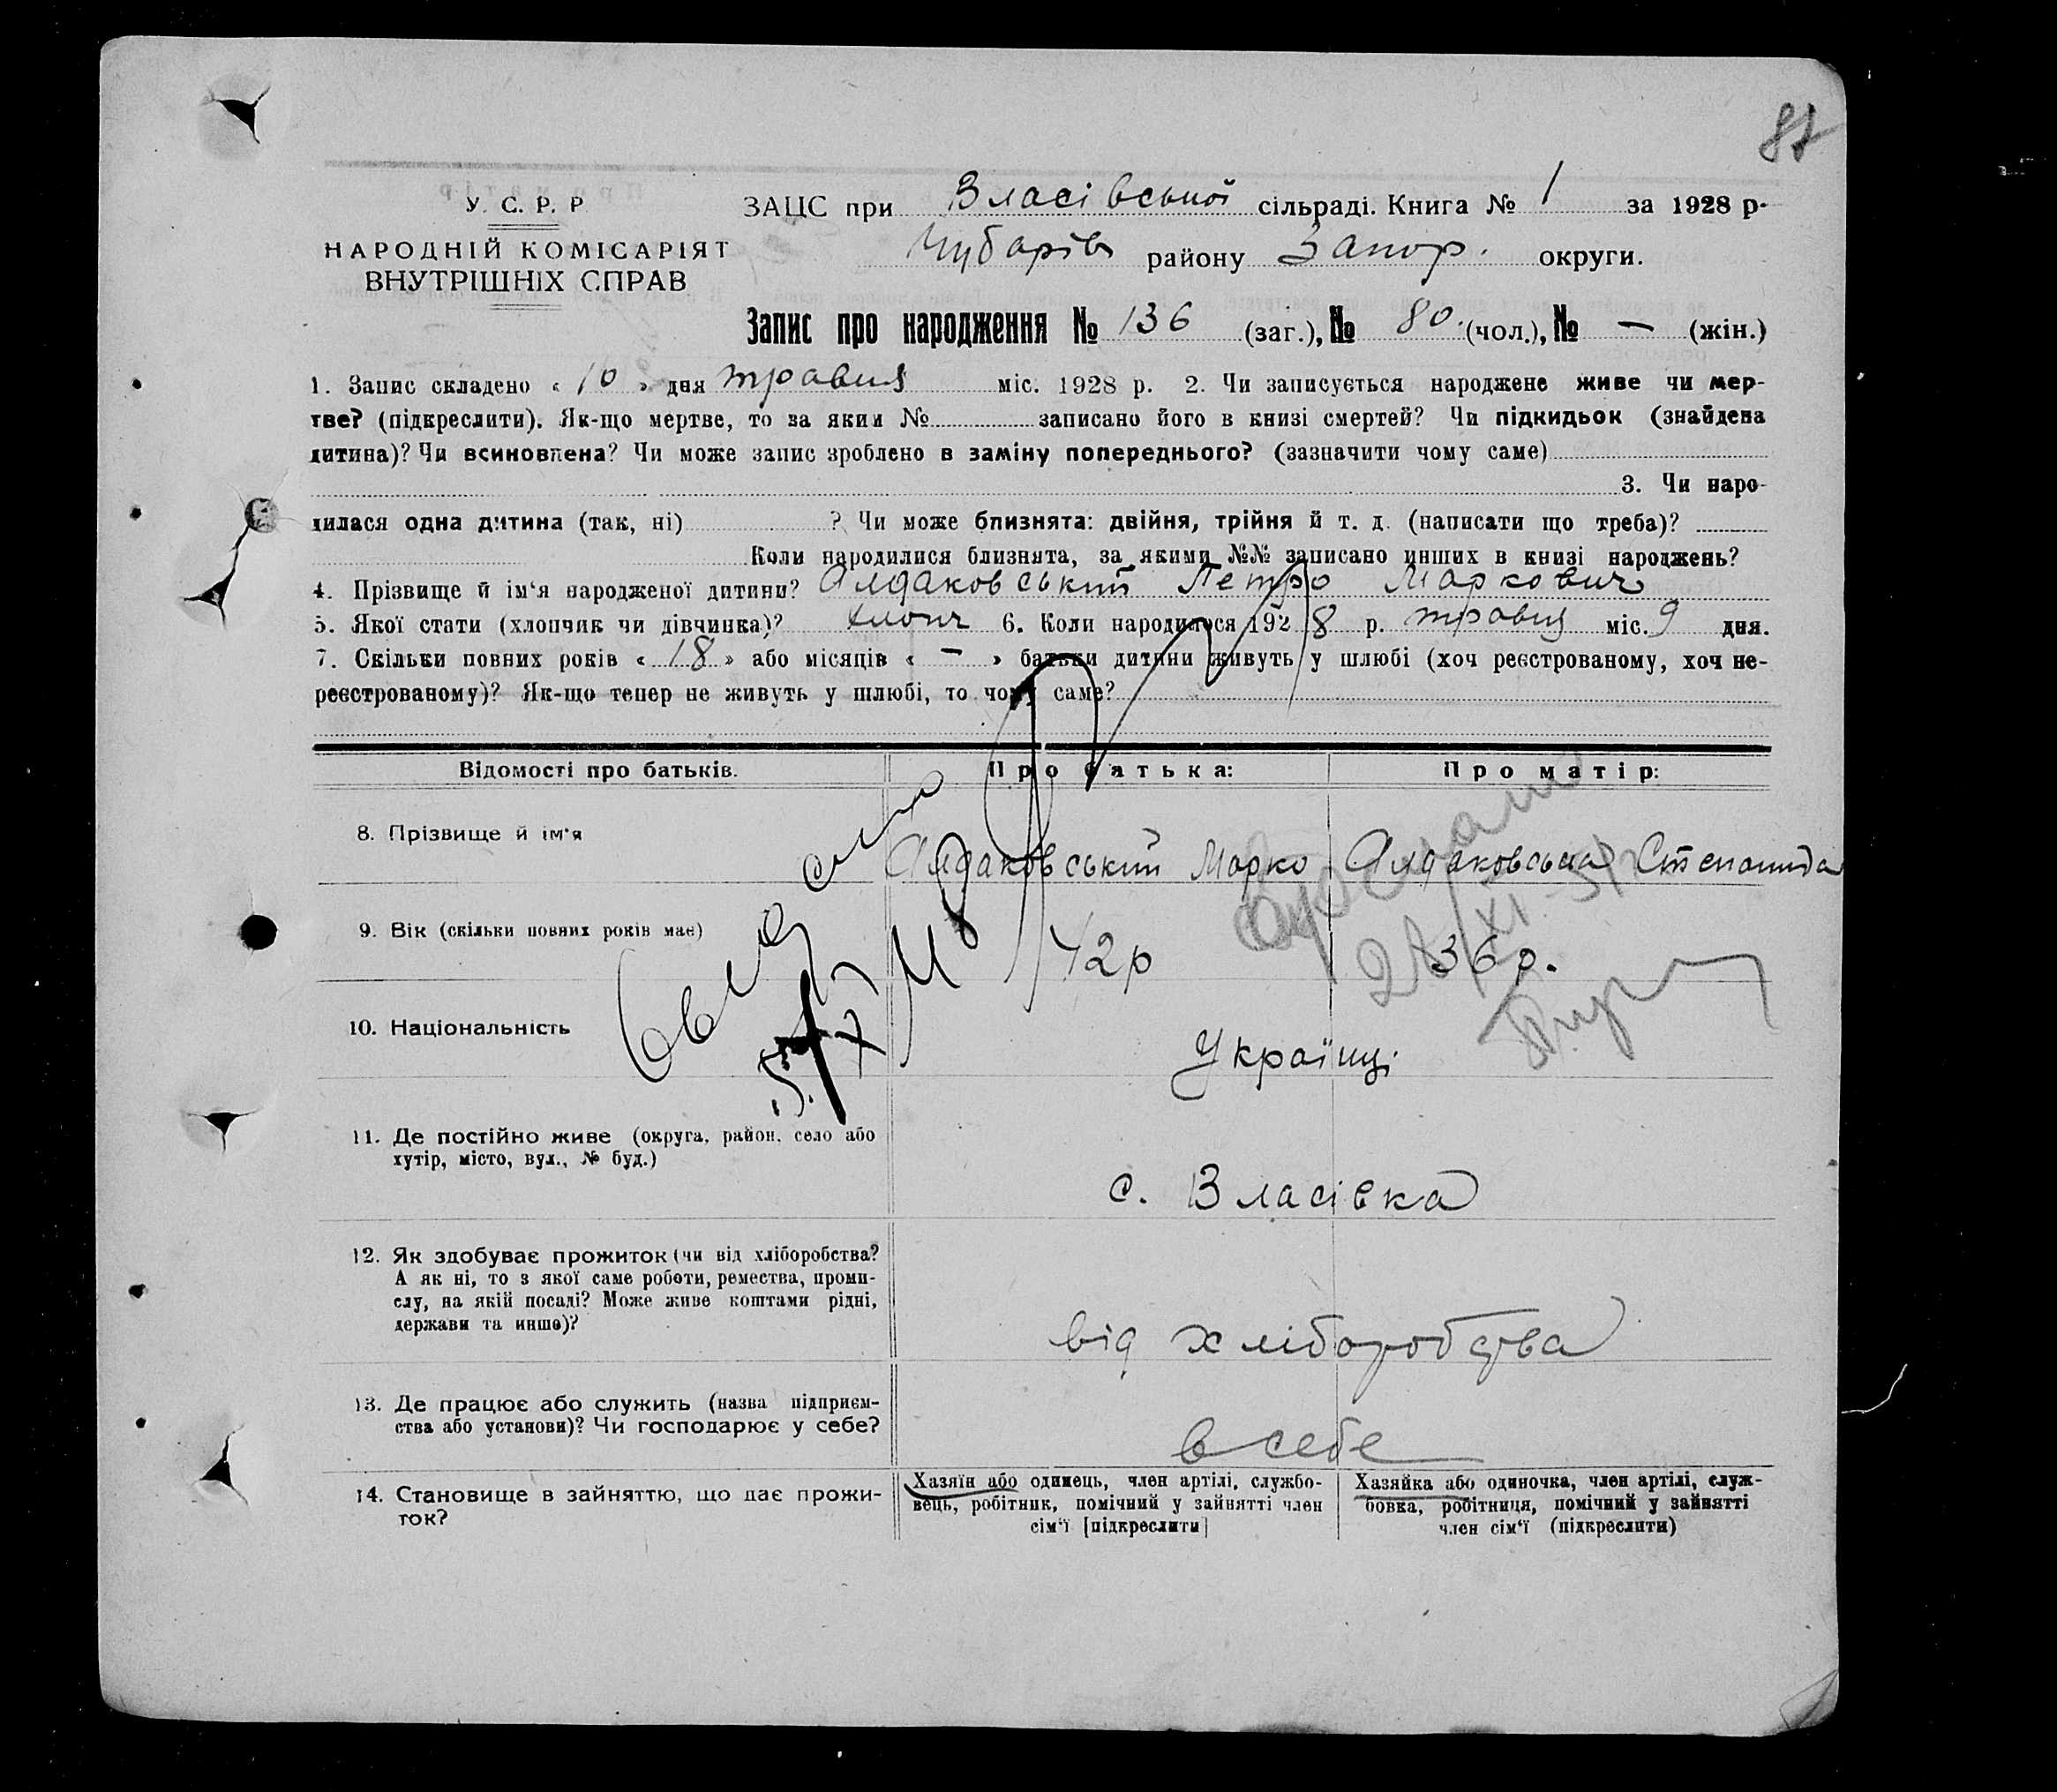 87
У. С. Р. Р
НАРОДНІЙ КОМІСАРІЯТ
ВНУТРІШНІХ СПРАВ
ЗАЦС при Власівської сільраді. Книга № 1 за 1928 р.
Чубарів району Запор. округи.
Запис про народження № 136 (заг.), № 80 (чол.), № — (жін.)
1. Запис складено « 10 » дня травня міс. 1928 р. 2. Чи записується народжене живе чи мер-
тве? (підкреслити). Як-що мертве, то за яким № записано його в книзі смертей? Чи підкидьок (знайдена
дитина)? Чи всиновлена? Чи може запис зроблено в заміну попереднього? (зазначити чому саме)
3. Чи наро-
дилася одна дитина (так, ні) ? Чи може близнята: двійня, трійня й т. д. (написати що треба)?
Коли народилися близнята, за якими №№ записано инших в книзі народжень?
4. Прізвище й ім‘я народженої дитини? Алдаковський Петро Маркович
5. Якої стати (хлопчик чи дівчинка)? хлопч 6. Коли народилося 1928 р. травня міс. 9 дня.
7. Скільки повних років « 18 » або місяців « — » батьки дитини живуть у шлюбі (хоч реєстрованому, хоч не-
реєстрованому)? Як-що тепер не живуть у шлюбі, то чому саме?
Відомості про батьків. Про батька: Про матір:
8. Прізвище й ім‘я Алдаковський Марко Алдаковська Степанида
9. Вік (скільки повних років має) 42р 36 р.
10. Національність Українці
11. Де постійно живе (округа, район, село або
хутір, місто, вул., № буд.)
с. Власівка
12. Як здобуває прожиток (чи від хліборобства?
А як ні, то з якої саме роботи, ремества, проми-
слу, на якій посаді? Може живе коштами рідні,
держави та инше)?
від хліборобства
13. Де працює або служить (назва підприєм-
ства або установи)? Чи господарює у себе?
в себе
14. Становище в зайняттю, що дає прожи-
ток?
Хазяїн або одинець, член артілі, службо-
вець, робітник, помічний у зайнятті член
сім‘ї [підкреслити]
Хазяйка або одиночка, член артілі, служ-
бовка, робітниця, помічний у зайнятті
член сім‘ї (підкреслити)